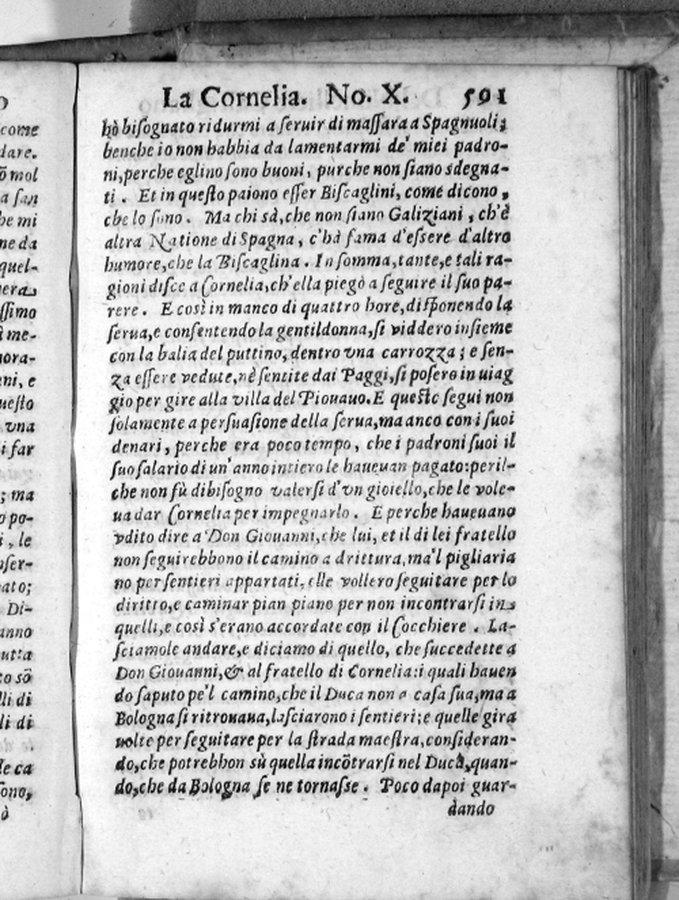 La Cornelia. No. X. 591
hò bisognato ridurmi a seruir di massara a Spagnuoli;
benche io non habbia da lamentarmi de' miei padro-
ni, perche eglino sono buoni, purche non siano sdegna-
ti. Et in questo paiono esser Biscaglini, come dicono,
che lo sono. Ma chi sà, che non siano Galiziani, ch'è
altra Natione di Spagna, c'hà fama d'essere d'altro
humore, che la Biscaglina. In somma, tante, e tali ra-
gioni disse a Cornelia, ch'ella piegò a seguire il suo pa-
rere. E così in manco di quattro hore, disponendo la
serua, e consentendo la gentildonna, si viddero insieme
con la balia del puttino, dentro vna carrozza; e sen-
za essere vedute, nè sentite dai Paggi, si posero in uiag
gio per gire alla villa del Piouano. E queste segui non
solamente a persuasione della serua, ma anco con i suoi
denari, perche era poco tempo, che i padroni suoi il
suo salario di un'anno intiero le haueuan pagato: peril-
che non fù dibisogno valersi d'vn gioiello, che le vole-
ua dar Cornelia per impegnarlo. E perche haueuano
vdito dire a Don Giouanni, che lui, et il di lei fratello
non seguirebbono il camino a drittura, ma'l pigliaria
no per sentieri appartati, elle vollero seguitare per lo
diritto, e caminar pian piano per non incontrarsi in
quelli, e così s'erano accordate con il Cocchiere. La-
sciamole andare, e diciamo di quello, che succedette a
Don Giouanni, & al fratello di Cornelia: i quali hauen
do saputo pe'l camino, che il Duca non a casa sua, ma a
Bologna si ritrouaua, lasciarono i sentieri; e quelle gira
uolte per seguitare per la strada maestra, consideran-
do, che potrebbon sù quella incõtrarsi nel Duca, quan-
do, che da Bologna se ne tornasse. Poco dapoi guar-
dando